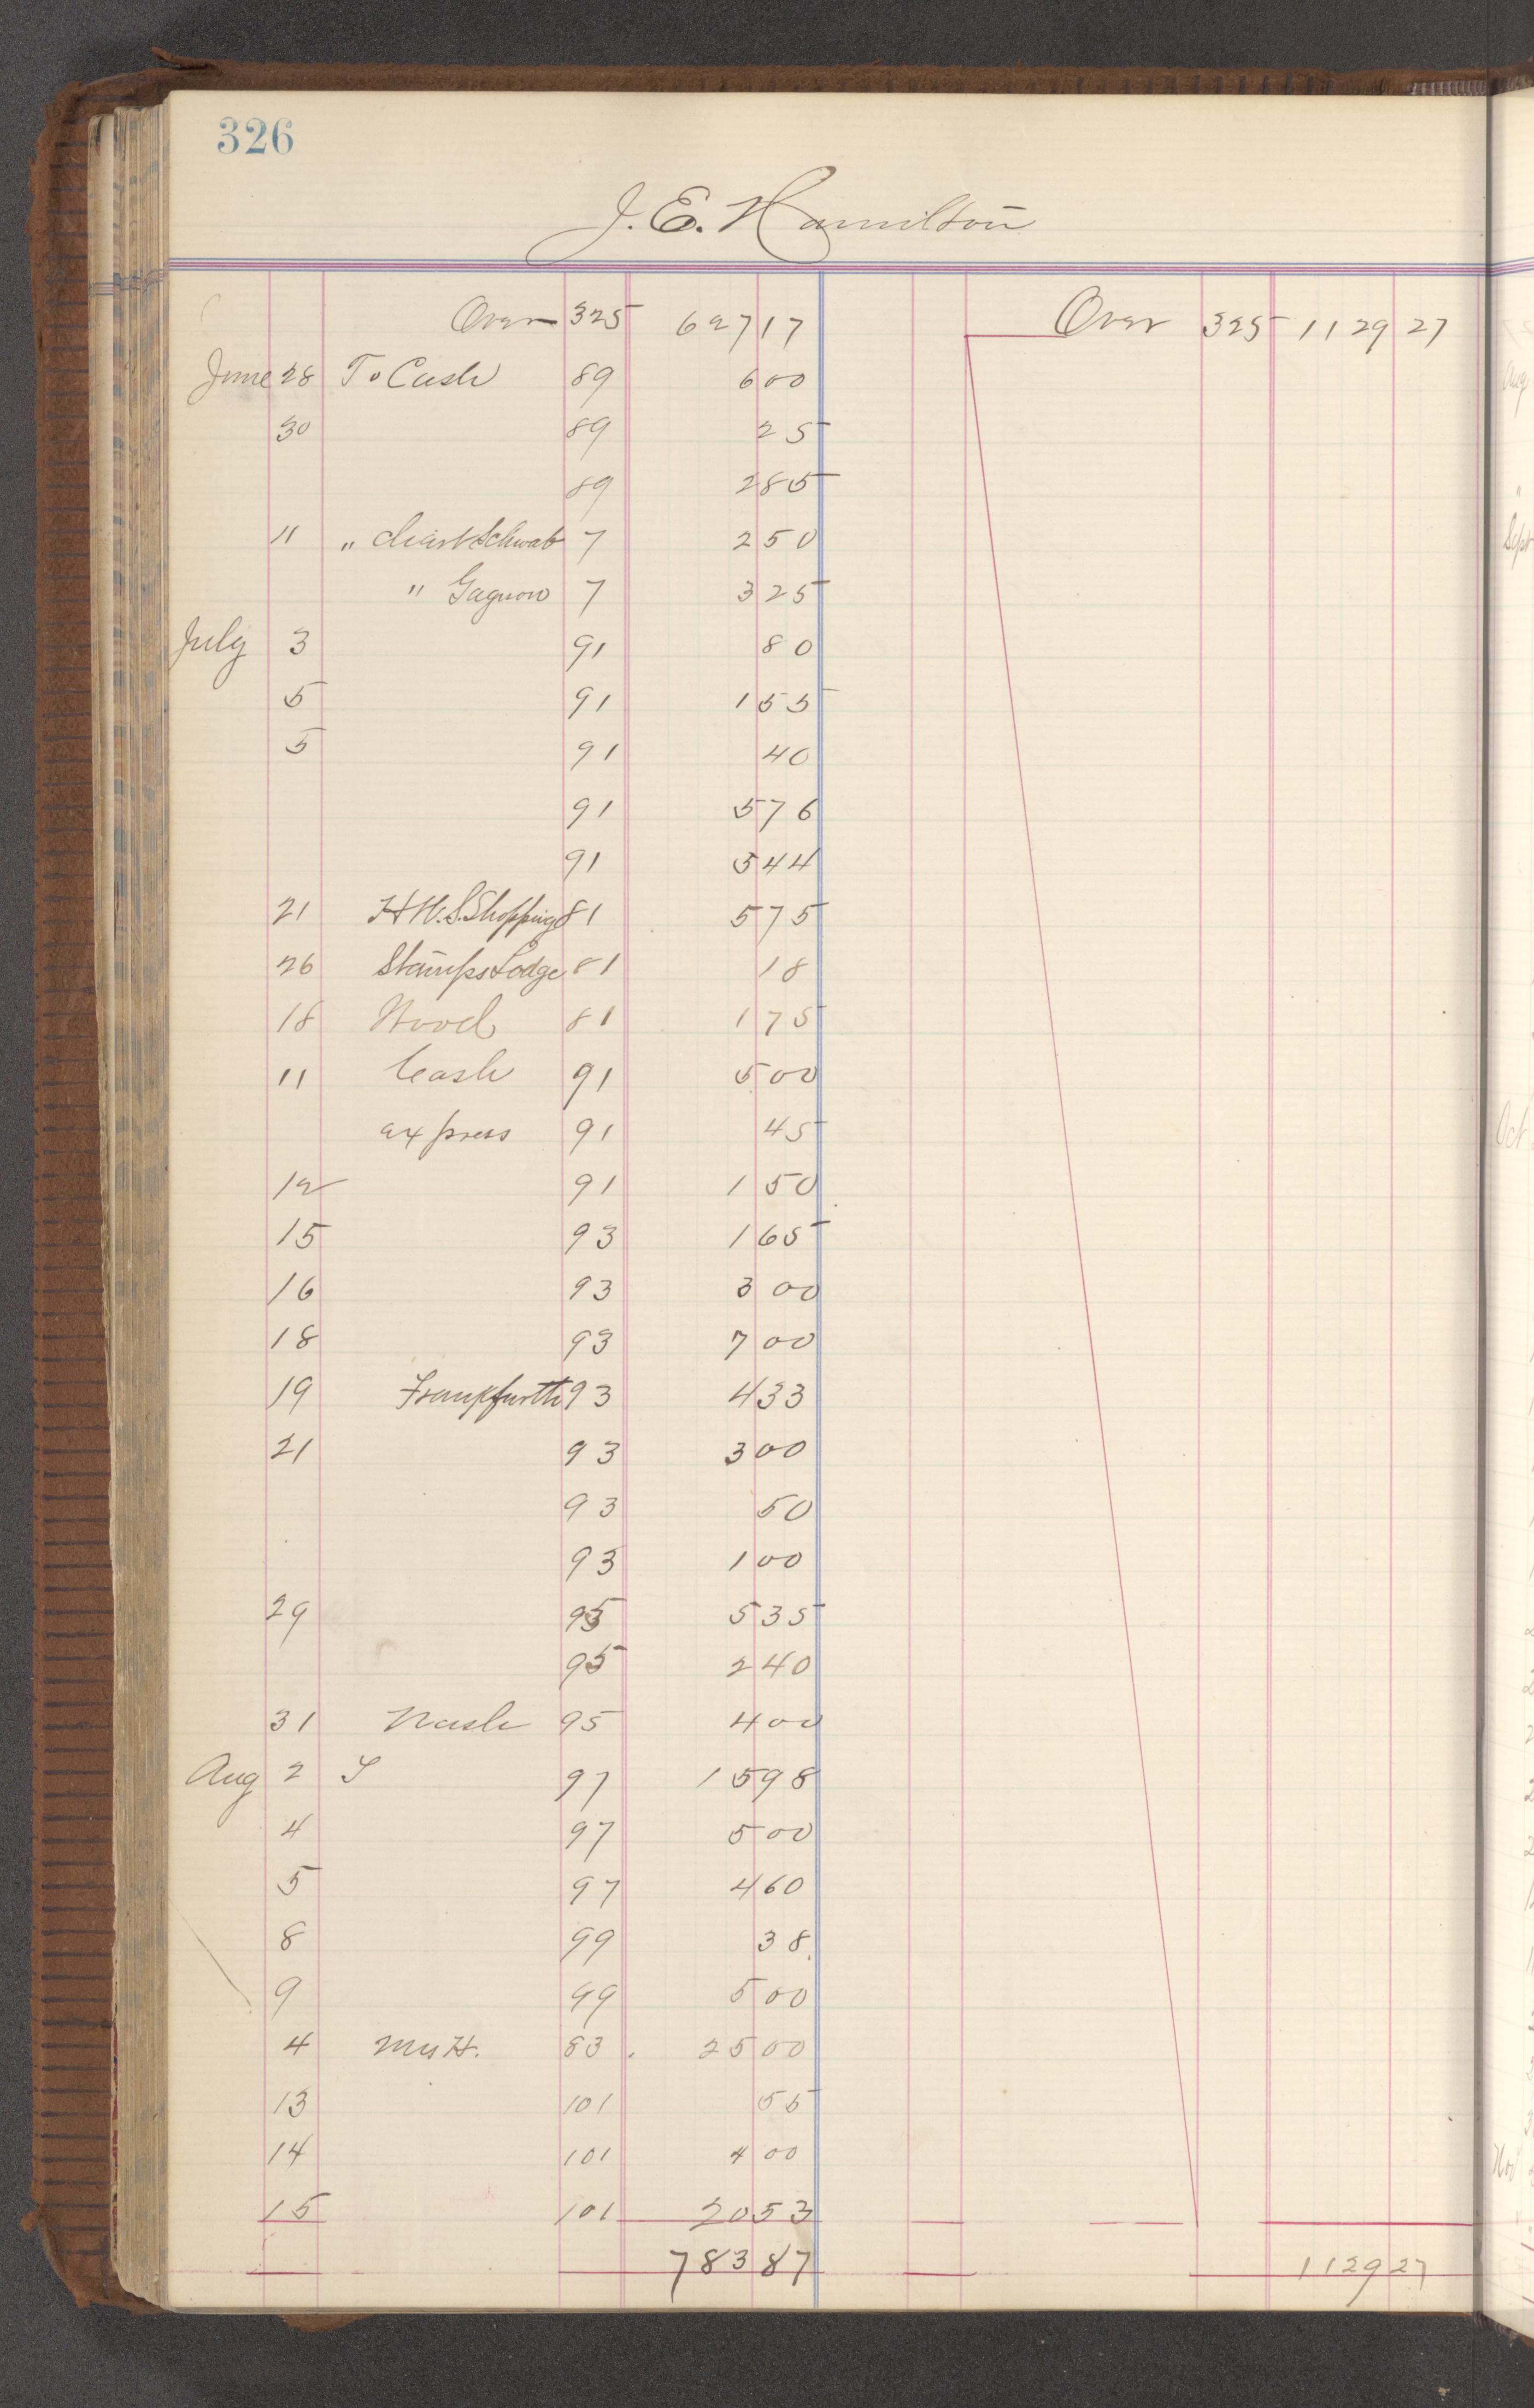 326
J. E. Hamilton
Over 325 627 17 Over 325 1129 27
June 28 To Cash 89 6 00
30 89 25
89 2 85
11 " Schwab 7 2 50
" Gagnow 7 3 25
July 3 91 80
5 91 1 55
5 91 40
91 5 76
91 5 44
21 H W. S. Shopping 81 5 75
26 Stamps Lodge 81 18
18 Wood 81 1 75
11 Cash 91 5 00
express 91 45
12 91 1 50
15 93 1 65
16 93 3 00
18 93 7 00
19 Frankfurth 93 4 33
21 93 3 00
93 50
93 1 00
29 95 5 35
95 2 40
31 Nash 95 4 00
Aug 2 97 15 98
4 97 5 00
5 97 4 60
8 99 38
9 99 5 00
4 Mrs H. 83 25 00
13 101 55
14 101 4 00
15 101 20 53
783 87 1129 27
Aug
Sept
Oct
Nov